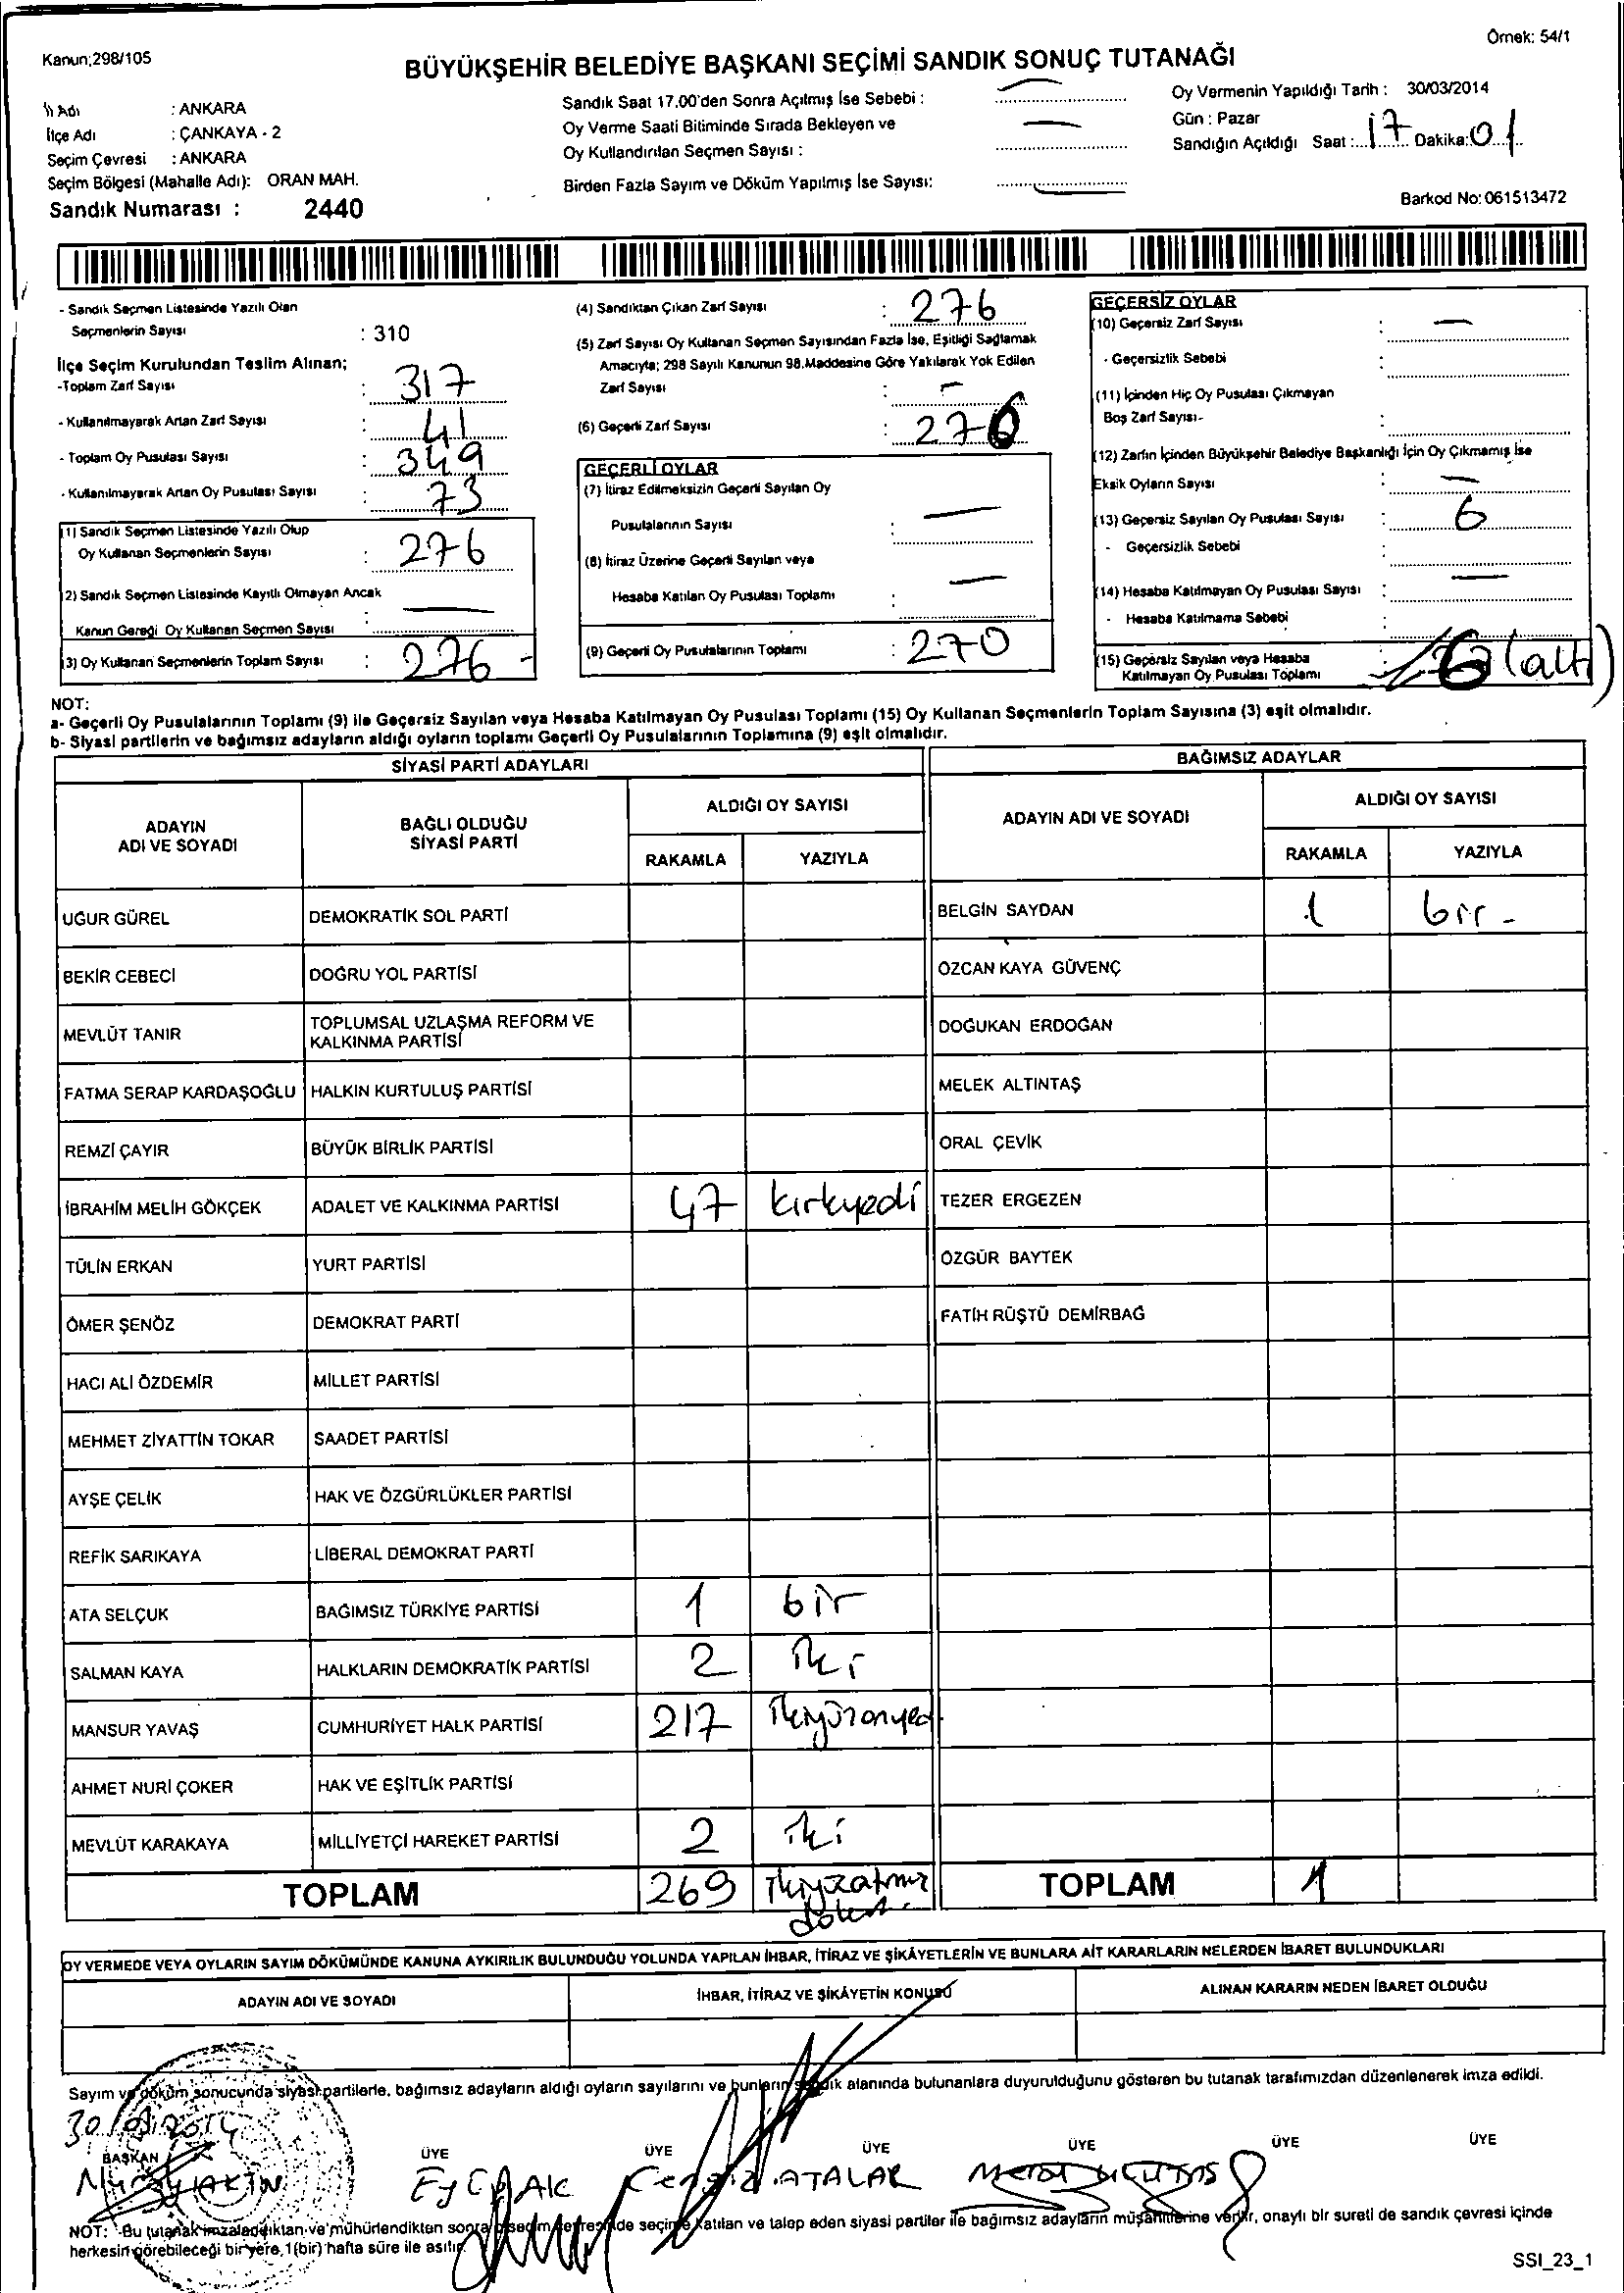 Örnek: 54/1
Kanun;298/105
BÜYÜKŞEHİR BELEDİYE BAŞKANI SEÇİMİ SANDIK SONUÇ TUTANAĞI
İl Adı : ANKARA
İlçe Adı : ÇANKAYA - 2
Seçim Çevresi : ANKARA
Seçim Bölgesi (Mahalle Adı): ORAN MAH.
Sandık Numarası : 2440
Sandık Saat 17.00'den Sonra Açılmış İse Sebebi : —
Oy Verme Saati Bitiminde Sırada Bekleyen ve
Oy Kullandırılan Seçmen Sayısı : —
Birden Fazla Sayım ve Döküm Yapılmış İse Sayısı: —
Oy Vermenin Yapıldığı Tarih : 30/03/2014
Gün : Pazar
Sandığın Açıldığı Saat : 17 Dakika: 01
Barkod No: 061513472
- Sandık Seçmen Listesinde Yazılı Olan
Seçmenlerin Sayısı : 310
İlçe Seçim Kurulundan Teslim Alınan;
-Toplam Zarf Sayısı : 317
- Kullanılmayarak Artan Zarf Sayısı : 41
- Toplam Oy Pusulası Sayısı : 349
- Kullanılmayarak Artan Oy Pusulası Sayısı : 73
(1) Sandık Seçmen Listesinde Yazılı Olup
Oy Kullanan Seçmenlerin Sayısı : 276
2) Sandık Seçmen Listesinde Kayıtlı Olmayan Ancak
Kanun Gereği Oy Kullanan Seçmen Sayısı : —
(3) Oy Kullanan Seçmenlerin Toplam Sayısı : 276 -
(4) Sandıktan Çıkan Zarf Sayısı : 276
(5) Zarf Sayısı Oy Kullanan Seçmen Sayısından Fazla İse, Eşitliği Sağlamak
Amacıyla; 298 Sayılı Kanunun 98.Maddesine Göre Yakılarak Yok Edilen
Zarf Sayısı : —
(6) Geçerli Zarf Sayısı : 276
GEÇERLİ OYLAR
(7) İtiraz Edilmeksizin Geçerli Sayılan Oy
Pusulalarının Sayısı : —
(8) İtiraz Üzerine Geçerli Sayılan veya
Hesaba Katılan Oy Pusulası Toplamı : —
(9) Geçerli Oy Pusulalarının Toplamı : 270
GEÇERSİZ OYLAR
(10) Geçersiz Zarf Sayısı : —
- Geçersizlik Sebebi :
(11) İçinden Hiç Oy Pusulası Çıkmayan
Boş Zarf Sayısı- :
(12) Zarfın İçinden Büyükşehir Belediye Başkanlığı İçin Oy Çıkmamış İse
Eksik Oyların Sayısı : —
(13) Geçersiz Sayılan Oy Pusulası Sayısı : 6
- Geçersizlik Sebebi :
(14) Hesaba Katılmayan Oy Pusulası Sayısı : —
- Hesaba Katılmama Sebebi :
(15) Geçersiz Sayılan veya Hesaba
Katılmayan Oy Pusulası Toplamı 6 (altı)
NOT:
a- Geçerli Oy Pusulalarının Toplamı (9) ile Geçersiz Sayılan veya Hesaba Katılmayan Oy Pusulası Toplamı (15) Oy Kullanan Seçmenlerin Toplam Sayısına (3) eşit olmalıdır.
b- Siyasi partilerin ve bağımsız adayların aldığı oyların toplamı Geçerli Oy Pusulalarının Toplamına (9) eşit olmalıdır.
SİYASİ PARTİ ADAYLARI
ADAYIN ADI VE SOYADI BAĞLI OLDUĞU SİYASİ PARTİ ALDIĞI OY SAYISI
RAKAMLA YAZIYLA
UĞUR GÜREL DEMOKRATİK SOL PARTİ
BEKİR CEBECİ DOĞRU YOL PARTİSİ
MEVLÜT TANIR TOPLUMSAL UZLAŞMA REFORM VE KALKINMA PARTİSİ
FATMA SERAP KARDAŞOĞLU HALKIN KURTULUŞ PARTİSİ
REMZİ ÇAYIR BÜYÜK BİRLİK PARTİSİ
İBRAHİM MELİH GÖKÇEK ADALET VE KALKINMA PARTİSİ 47 kırkyedi
TÜLİN ERKAN YURT PARTİSİ
ÖMER ŞENÖZ DEMOKRAT PARTİ
HACI ALİ ÖZDEMİR MİLLET PARTİSİ
MEHMET ZİYATTİN TOKAR SAADET PARTİSİ
AYŞE ÇELİK HAK VE ÖZGÜRLÜKLER PARTİSİ
REFİK SARIKAYA LİBERAL DEMOKRAT PARTİ
ATA SELÇUK BAĞIMSIZ TÜRKİYE PARTİSİ 1 bir
SALMAN KAYA HALKLARIN DEMOKRATİK PARTİSİ 2 iki
MANSUR YAVAŞ CUMHURİYET HALK PARTİSİ 217 ikiyüzonyedi
AHMET NURİ ÇOKER HAK VE EŞİTLİK PARTİSİ
MEVLÜT KARAKAYA MİLLİYETÇİ HAREKET PARTİSİ 2 iki
TOPLAM 269
BAĞIMSIZ ADAYLAR
ADAYIN ADI VE SOYADI ALDIĞI OY SAYISI
RAKAMLA YAZIYLA
BELGİN SAYDAN 1 bir -
ÖZCAN KAYA GÜVENÇ
DOĞUKAN ERDOĞAN
MELEK ALTINTAŞ
ORAL ÇEVİK
TEZER ERGEZEN
ÖZGÜR BAYTEK
FATİH RÜŞTÜ DEMİRBAĞ
TOPLAM 1
OY VERMEDE VEYA OYLARIN SAYIM DÖKÜMÜNDE KANUNA AYKIRILIK BULUNDUĞU YOLUNDA YAPILAN İHBAR, İTİRAZ VE ŞİKÂYETLERİN VE BUNLARA AİT KARARLARIN NELERDEN İBARET BULUNDUKLARI
ADAYIN ADI VE SOYADI İHBAR, İTİRAZ VE ŞİKÂYETİN KONUSU ALINAN KARARIN NEDEN İBARET OLDUĞU
Sayım ve döküm sonucunda siyasi partilerle, bağımsız adayların aldığı oyların sayılarını ve bunların sandık alanında bulunanlara duyurulduğunu gösteren bu tutanak tarafımızdan düzenlenerek imza edildi.
30/03/2014
BAŞKAN ÜYE ÜYE ÜYE ÜYE ÜYE ÜYE
Cengiz ATALAR
NOT: -Bu tutanak imzaladıktan ve mühürlendikten sonra seçim çevresinde seçime katılan ve talep eden siyasi partiler ile bağımsız adayların müşahitlerine verilir, onaylı bir sureti de sandık çevresi içinde
herkesin görebileceği bir yere, 1(bir) hafta süre ile asılır.
SSI_23_1